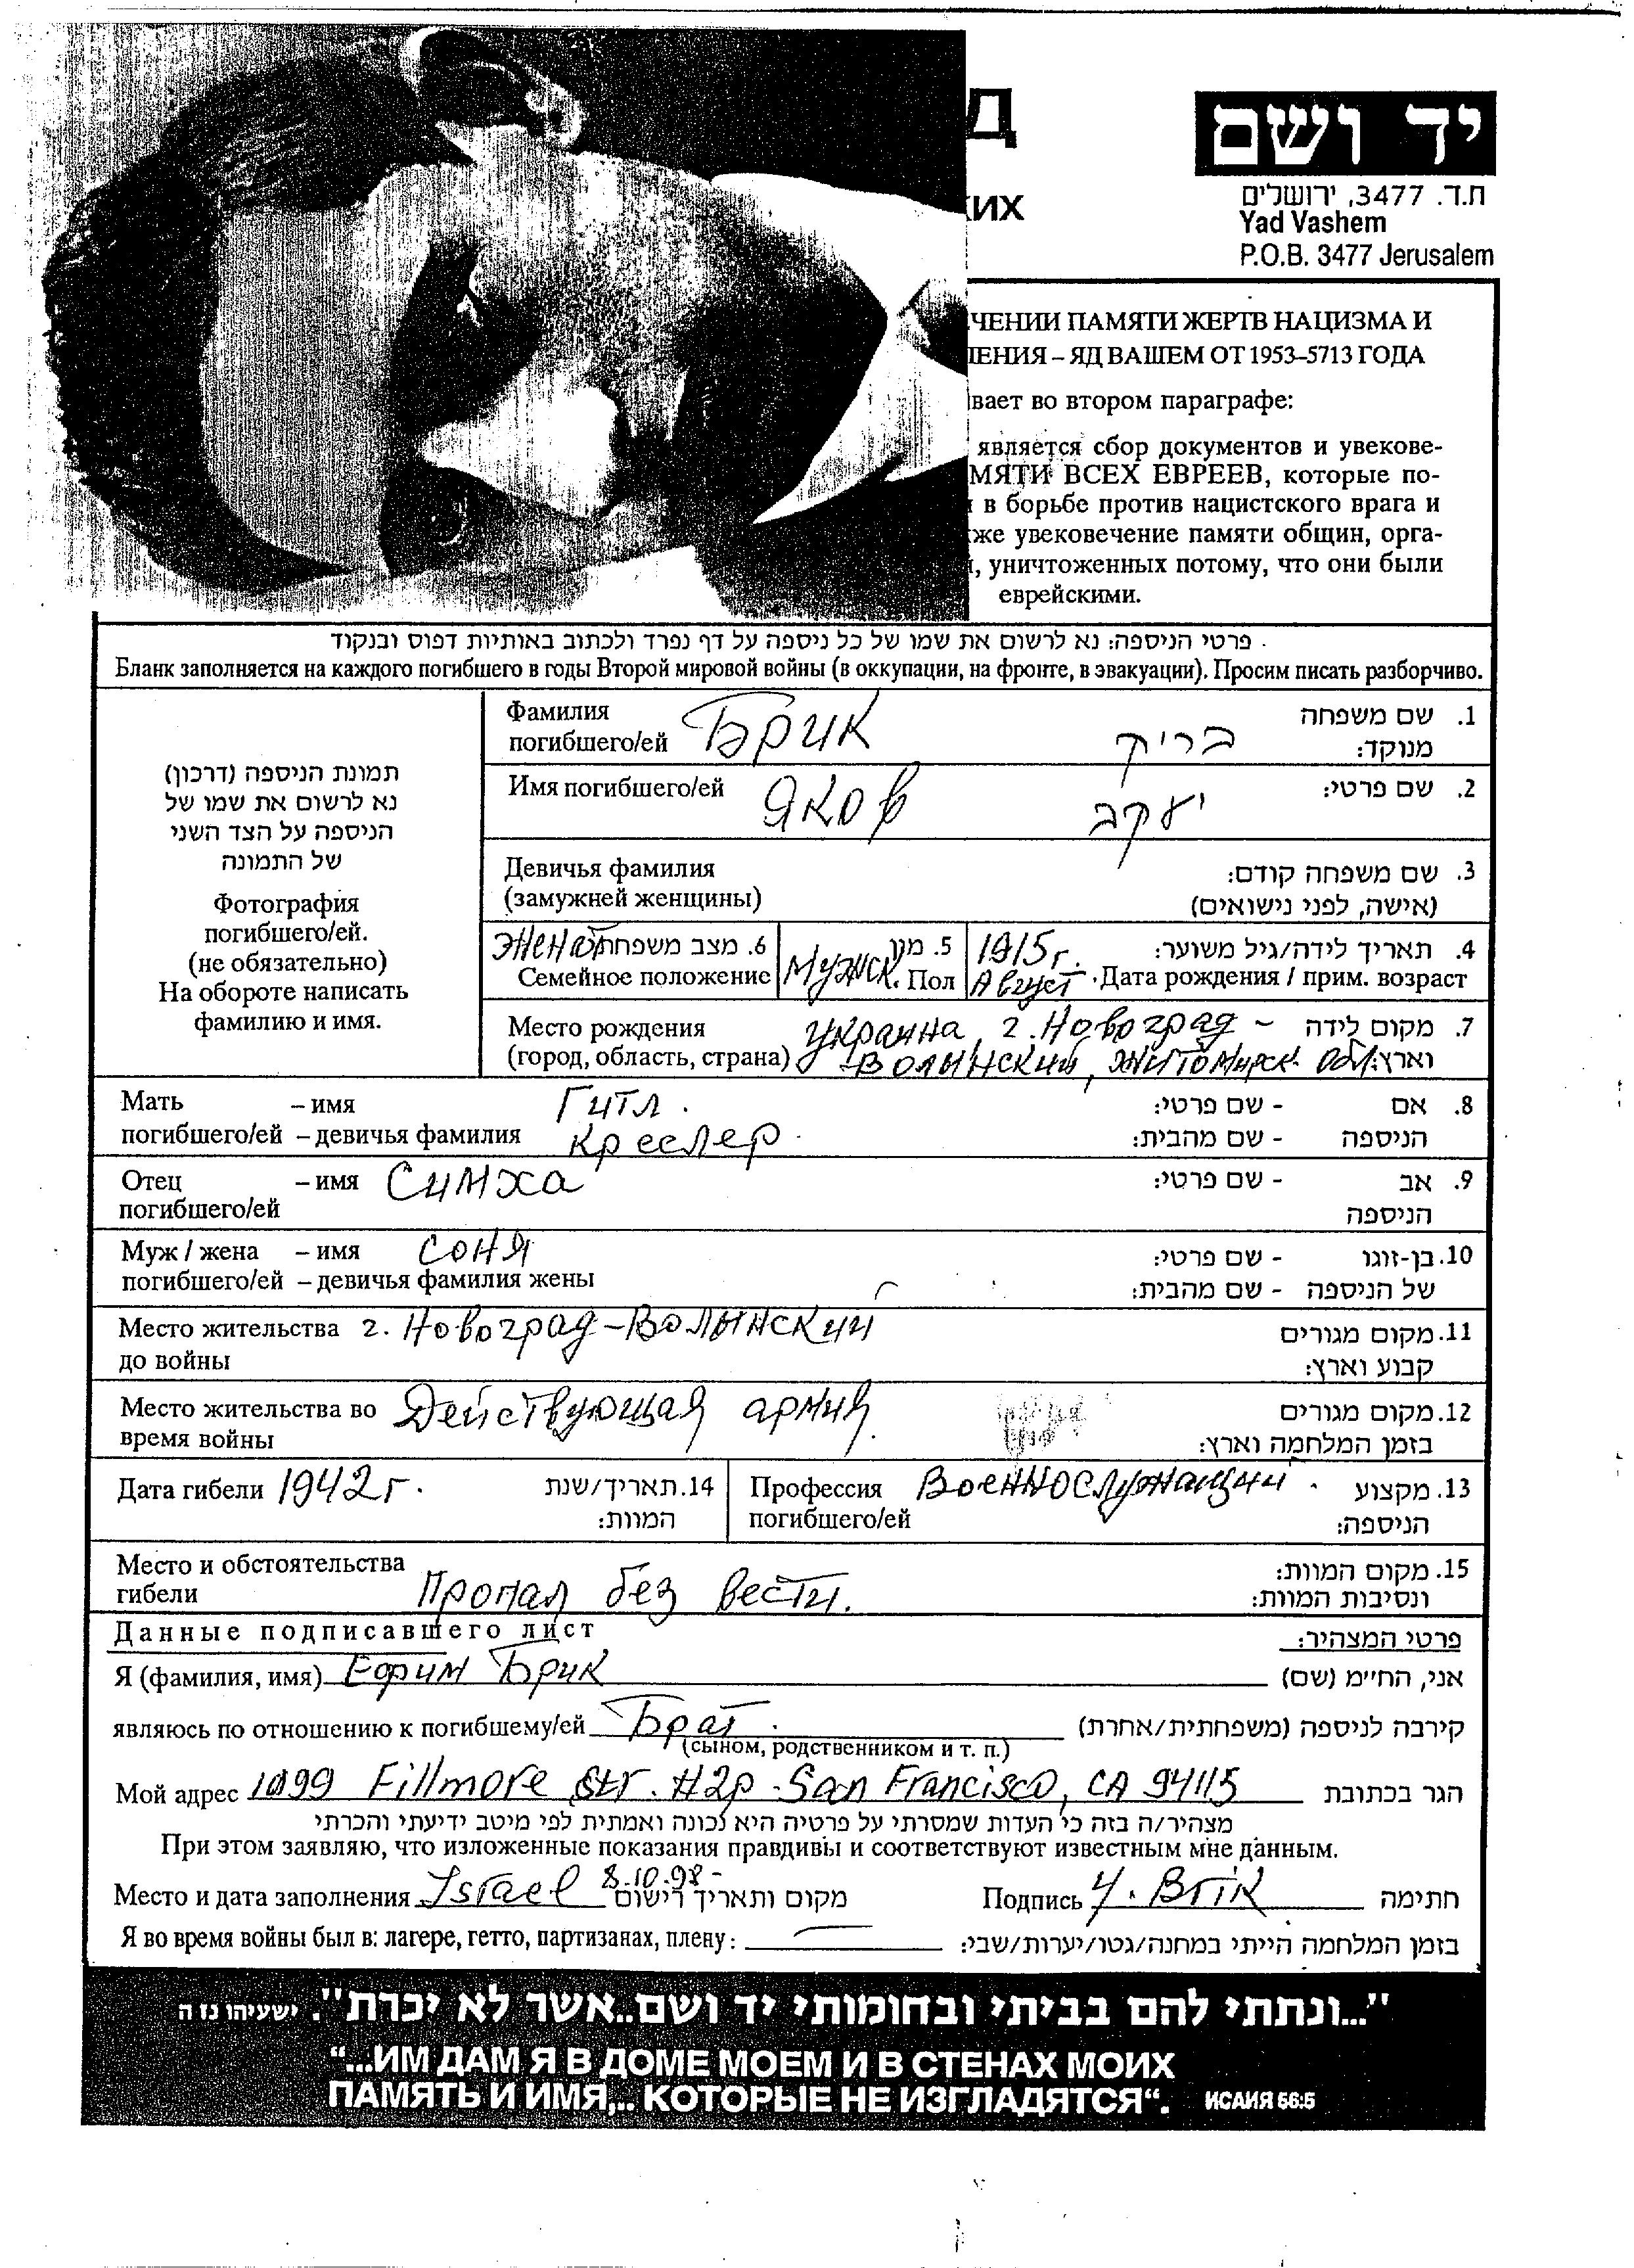 Д
ких
יד ושם
ת.ד. 3477, ירושלים
Yad Vashem
P.O.B. 3477 Jerusalem
ЧЕНИИ ПАМЯТИ ЖЕРТВ НАЦИЗМА И
ЛЕНИЯ – ЯД ВАШЕМ ОТ 1953–5713 ГОДА
вает во втором параграфе:
является сбор документов и увекове-
МЯТИ ВСЕХ ЕВРЕЕВ, которые по-
в борьбе против нацистского врага и
же увековечение памяти общин, орга-
, уничтоженных потому, что они были
еврейскими.
פרטי הניספה: נא לרשום את שמו של כל ניספה על דף נפרד ולכתוב באותיות דפוס ובנקוד
Бланк заполняется на каждого погибшего в годы Второй мировой войны (в оккупации, на фронте, в эвакуации). Просим писать разборчиво.
תמונת הניספה (דרכון)
נא לרשום את שמו של
הניספה על הצד השני
של התמונה
Фотография
погибшего/ей.
(не обязательно)
На обороте написать
фамилию и имя.
Фамилия погибшего/ей Брик בריק 1. שם משפחה מנוקד:
Имя погибшего/ей Яков יעקב 2. שם פרטי:
Девичья фамилия 3. שם משפחה קודם:
(замужней женщины) (אישה, לפני נישואים)
Женат 6. מצב משפחתי Мужск. 5. מין 1915г. 4. תאריך לידה/גיל משוער:
Семейное положение Пол Август Дата рождения / прим. возраст
Место рождения Украина, г. Новоград- 7. מקום לידה
(город, область, страна) -Волынский, Житомирск. обл. וארץ:
Мать – имя Гитл. 8. אם - שם פרטי:
погибшего/ей – девичья фамилия Креслер. הניספה - שם מהבית:
Отец – имя Симха 9. אב - שם פרטי:
погибшего/ей הניספה
Муж / жена – имя Соня 10. בן-זוגו - שם פרטי:
погибшего/ей – девичья фамилия жены של הניספה - שם מהבית:
Место жительства г. Новоград-Волынский 11. מקום מגורים
до войны קבוע וארץ:
Место жительства во Действующая армия. 12. מקום מגורים
время войны בזמן המלחמה וארץ:
Дата гибели 1942г. 14. תאריך/שנת המוות: Профессия погибшего/ей Военнослужащий. 13. מקצוע הניספה:
Место и обстоятельства 15. מקום המוות:
гибели Пропал без вести. ונסיבות המוות:
Данные подписавшего лист פרטי המצהיר:
Я (фамилия, имя) Ефим Брик אני, הח"מ (שם)
являюсь по отношению к погибшему/ей Брат. קירבה לניספה (משפחתית/אחרת)
(сыном, родственником и т. п.)
Мой адрес 1099 Fillmore Str. #2p San Francisco, CA 94115 הגר בכתובת
מצהיר/ה בזה כי העדות שמסרתי על פרטיה היא נכונה ואמתית לפי מיטב ידיעתי והכרתי
При этом заявляю, что изложенные показания правдивы и соответствуют известным мне данным.
Место и дата заполнения Israel 8.10.98- מקום ותאריך רישום Подпись Y. Brik חתימה
Я во время войны был в: лагере, гетто, партизанах, плену: בזמן המלחמה הייתי במחנה/גטו/יערות/שבי:
"...ונתתי להם בביתי ובחומותי יד ושם..אשר לא יכרת". ישעיהו נז ה
“...ИМ ДАМ Я В ДОМЕ МОЕМ И В СТЕНАХ МОИХ
ПАМЯТЬ И ИМЯ,.. КОТОРЫЕ НЕ ИЗГЛАДЯТСЯ“. ИСАИЯ 56:5